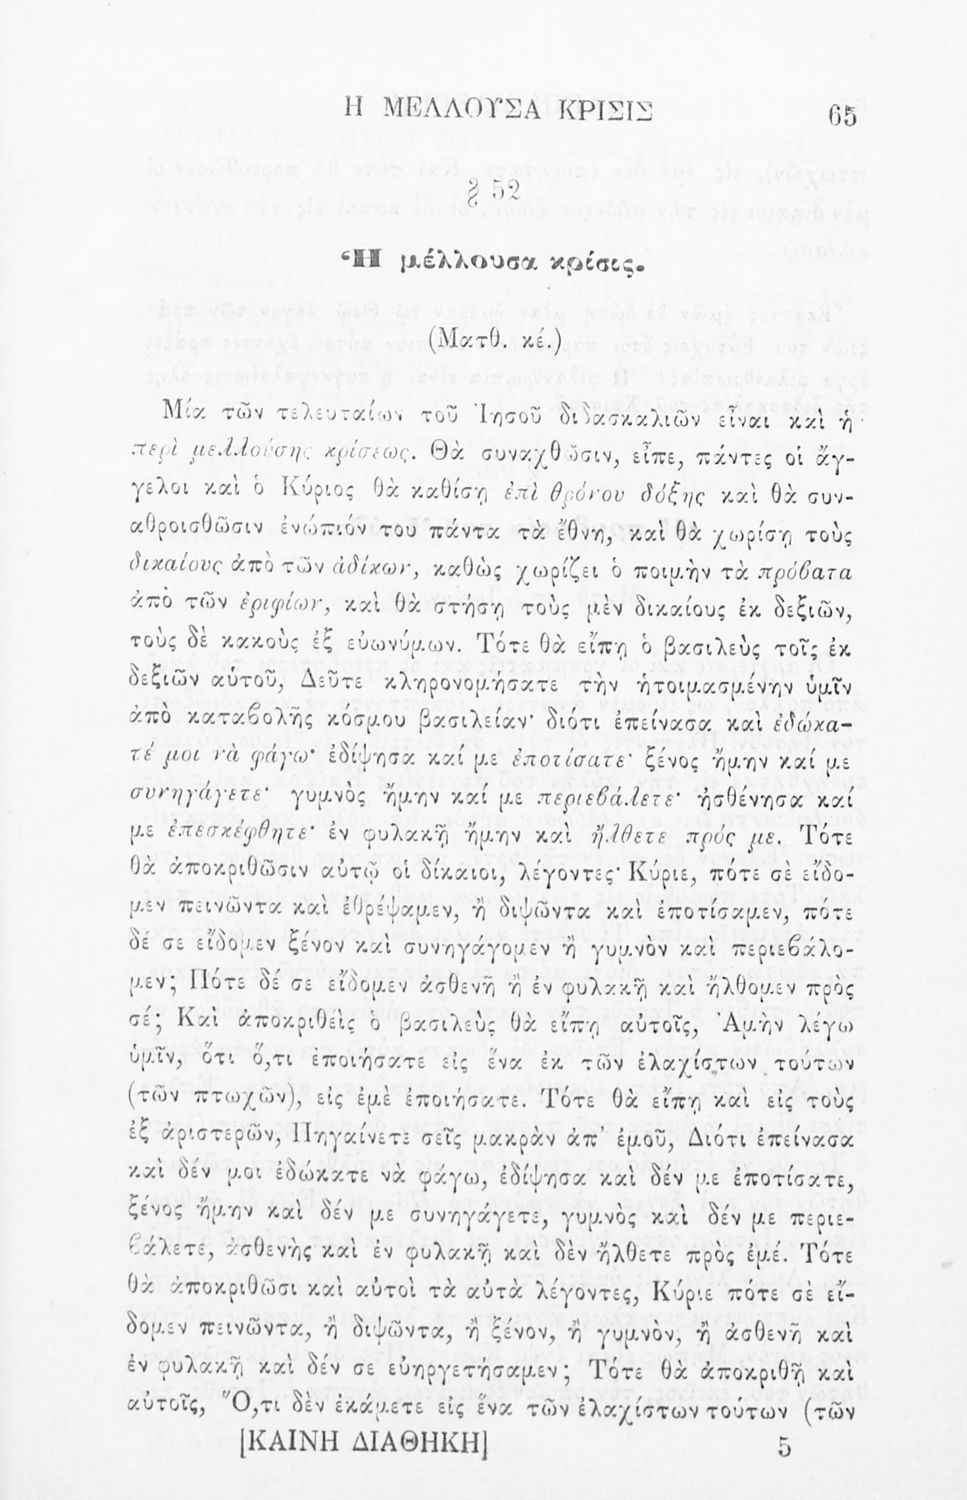 Η ΜΕΛΛΟΥΣΑ ΚΡΙΣΙΣ 65
§ 52
Ἡ μέλλουσα κρίσις.
(Ματθ. κέ.)
Μία τῶν τελευταίων τοῦ Ἰησοῦ διδασκαλιῶν εἶναι καὶ ἡ
περὶ μελλούσης κρίσεως. Θὰ συναχθῶσιν, εἶπε, πάντες οἱ ἄγ-
γελοι καὶ ὁ Κύριος θὰ καθίσῃ ἐπὶ θρόνου δόξης καὶ θὰ συν-
αθροισθῶσιν ἐνώπιόν του πάντα τὰ ἔθνη, καὶ θὰ χωρίσῃ τοὺς
δικαίους ἀπὸ τῶν ἀδίκων, καθὼς χωρίζει ὁ ποιμὴν τὰ πρόβατα
ἀπὸ τῶν ἐριφίων, καὶ θὰ στήσῃ τοὺς μὲν δικαίους ἐκ δεξιῶν,
τοὺς δὲ κακοὺς ἐξ εὐωνύμων. Τότε θὰ εἴπῃ ὁ βασιλεὺς τοῖς ἐκ
δεξιῶν αὑτοῦ, Δεῦτε κληρονομήσατε τὴν ἡτοιμασμένην ὑμῖν
ἀπὸ καταβολῆς κόσμου βασιλείαν· διότι ἐπείνασα καὶ ἐδώκα-
τέ μοι νὰ φάγω· ἐδίψησα καί με ἐποτίσατε· ξένος ἤμην καί με
συνηγάγετε· γυμνὸς ἤμην καί με περιεβάλετε· ἠσθένησα καί
με ἐπεσκέφθητε· ἐν φυλακῇ ἤμην καὶ ἤλθετε πρός με. Τότε
θὰ ἀποκριθῶσιν αὐτῷ οἱ δίκαιοι, λέγοντες· Κύριε, πότε σὲ εἴδο-
μεν πεινῶντα καὶ ἐθρέψαμεν, ἢ διψῶντα καὶ ἐποτίσαμεν, πότε
δέ σε εἴδομεν ξένον καὶ συνηγάγομεν ἢ γυμνὸν καὶ περιεβάλο-
μεν; Πότε δέ σε εἴδομεν ἀσθενῆ ἢ ἐν φυλακῇ καὶ ἤλθομεν πρὸς
σέ; Καὶ ἀποκριθεὶς ὁ βασιλεὺς θὰ εἴπῃ αὐτοῖς, Ἀμὴν λέγω
ὑμῖν, ὅτι ὅ,τι ἐποιήσατε εἰς ἕνα ἐκ τῶν ἐλαχίστων τούτων
(τῶν πτωχῶν), εἰς ἐμὲ ἐποιήσατε. Τότε θὰ εἴπῃ καὶ εἰς τοὺς
ἐξ ἀριστερῶν, Πηγαίνετε σεῖς μακρὰν ἀπ’ ἐμοῦ, Διότι ἐπείνασα
καὶ δέν μοι ἐδώκατε νὰ φάγω, ἐδίψησα καὶ δέν με ἐποτίσατε,
ξένος ἤμην καὶ δέν με συνηγάγετε, γυμνὸς καὶ δέν με περιε-
βάλετε, ἀσθενὴς καὶ ἐν φυλακῇ καὶ δὲν ἤλθετε πρὸς ἐμέ. Τότε
θὰ ἀποκριθῶσι καὶ αὐτοὶ τὰ αὐτὰ λέγοντες, Κύριε πότε σὲ εἴ-
δομεν πεινῶντα, ἢ διψῶντα, ἢ ξένον, ἢ γυμνὸν, ἢ ἀσθενῆ καὶ
ἐν φυλακῇ καὶ δέν σε εὐηργετήσαμεν; Τότε θὰ ἀποκριθῇ καὶ
αὐτοῖς, Ὅ,τι δὲν ἐκάμετε εἰς ἕνα τῶν ἐλαχίστων τούτων (τῶν
[ΚΑΙΝΗ ΔΙΑΘΗΚΗ] 5